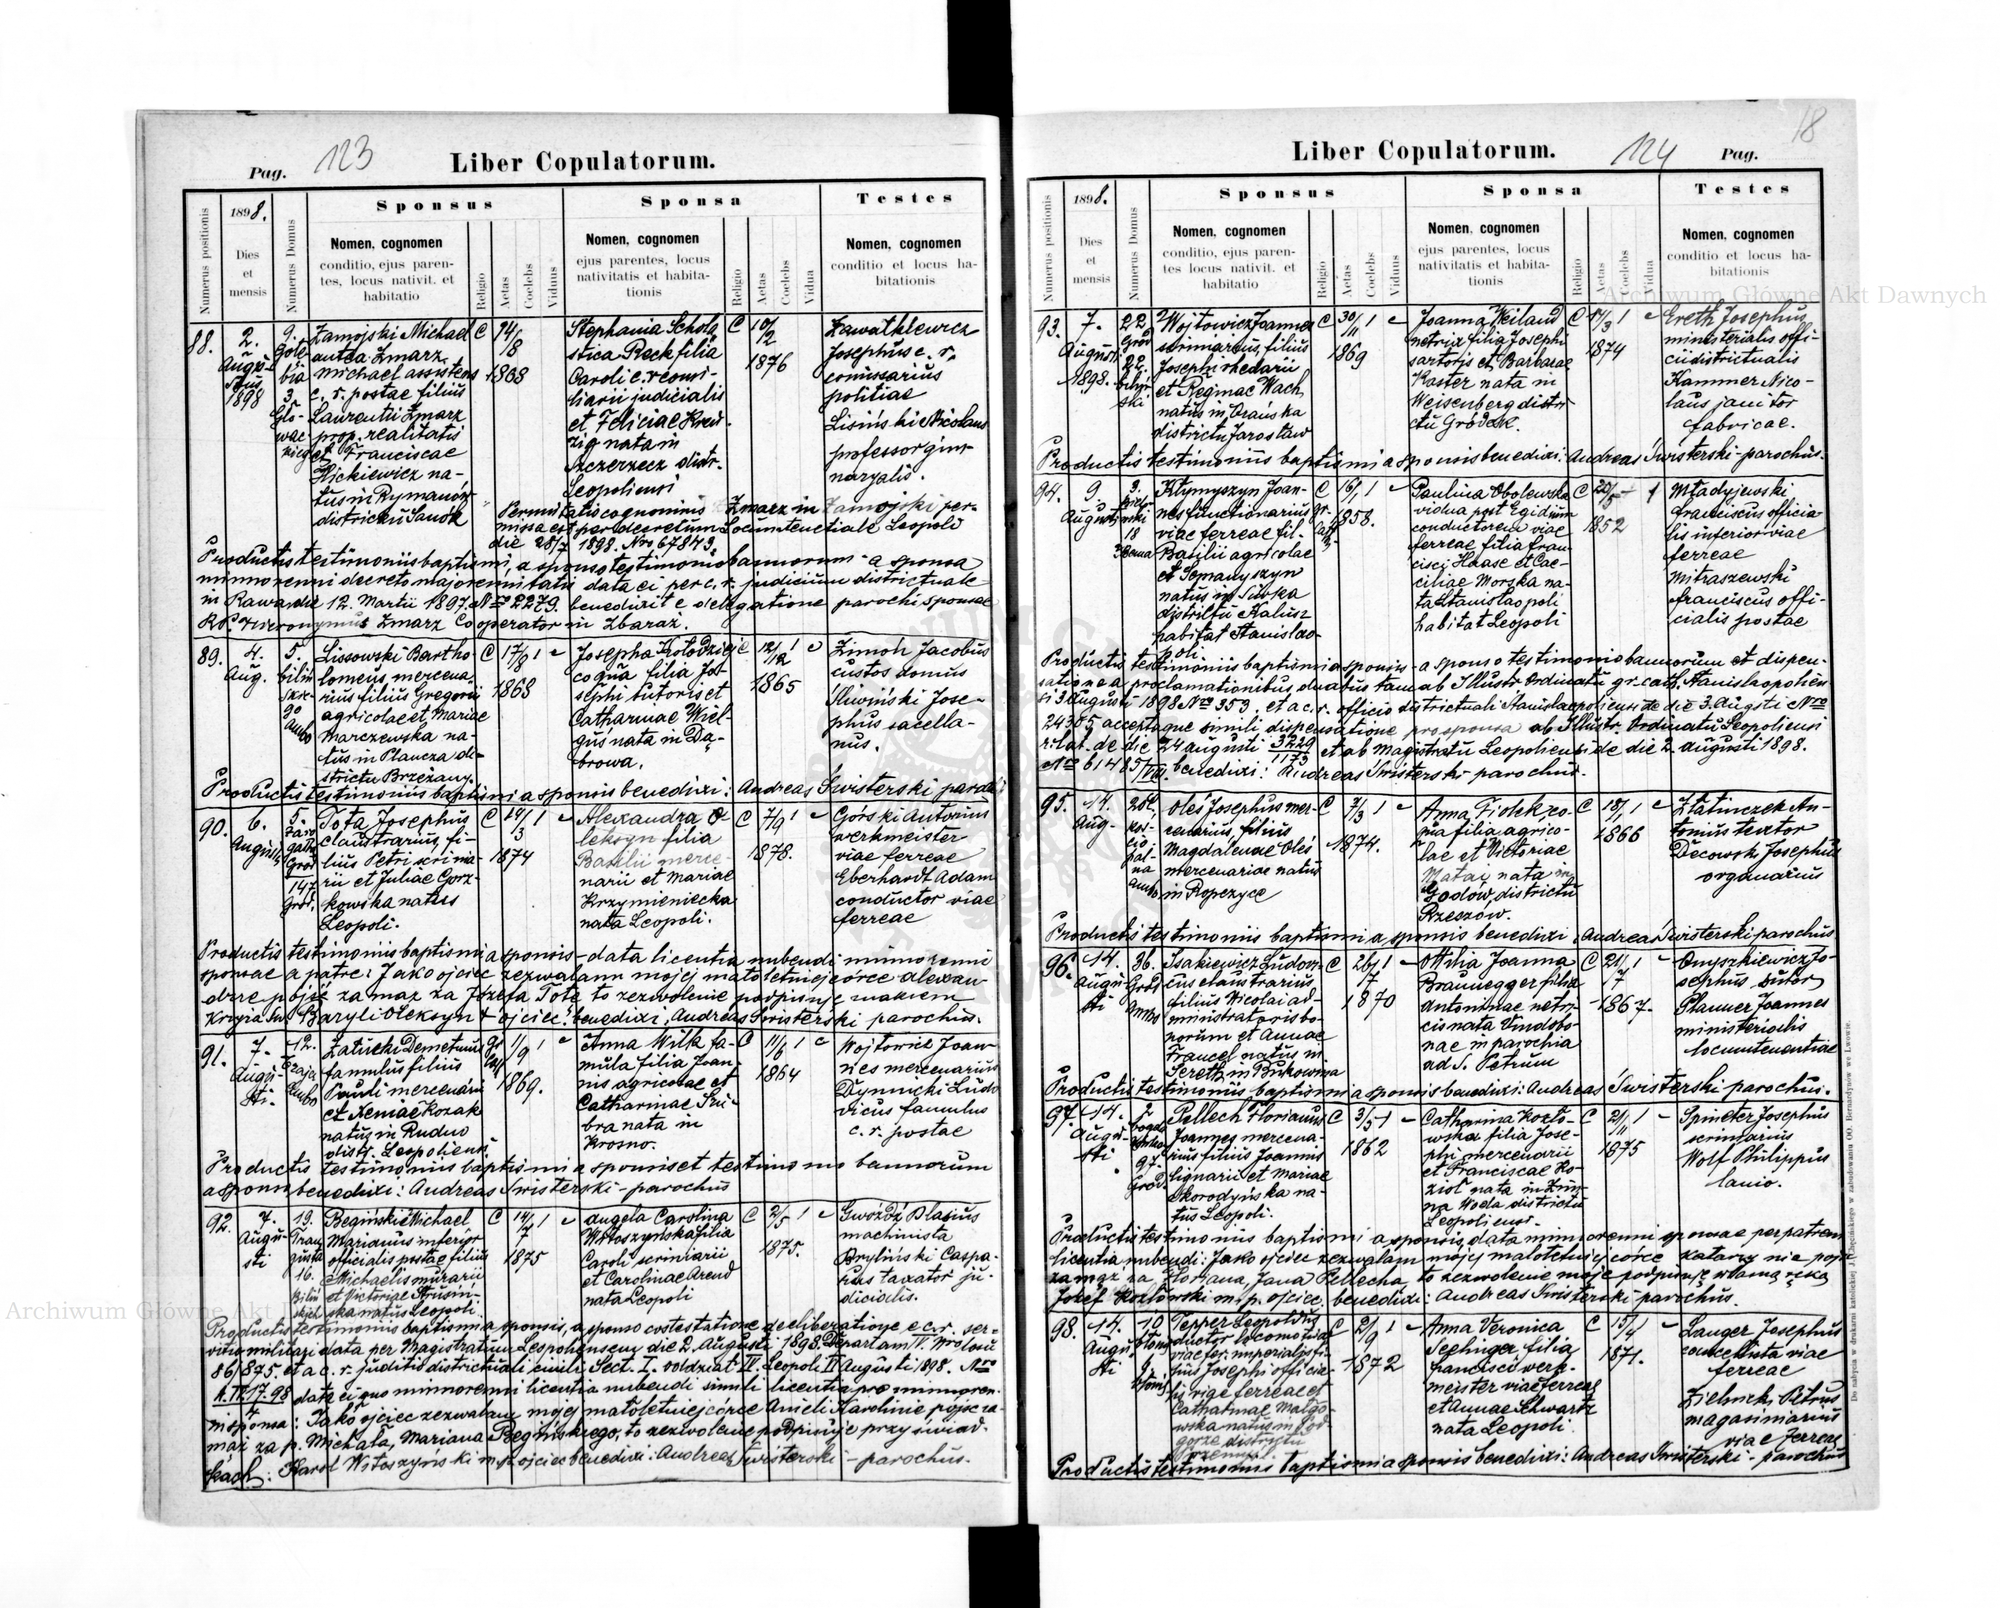 Pag. 123
Liber Copulatorum.
Numerus positionis
1898.
Dies
et
mensis
Numerus Domus
Sponsus
Nomen, cognomen
conditio, ejus paren-
tes, locus nativit. et
habitatio
Religio
Aetas
Coelebs
Viduus
Sponsa
Nomen, cognomen
ejus parentes, locus
nativitatis et habita-
tionis
Religio
Aetas
Coelebs
Vidua
Testes
Nomen, cognomen
conditio et locus ha-
bitationis
88.
2.
Augu-
stus
1898
9.
Gołę-
bia
3.
Zamojski Michael
antea Zmarz
Michael assistens
c. r. postae filius
Laurentii Zmarz
prop. realitatis
et Franciscae
Hickiewicz na-
tus in Rymanów
districtu Sanok
C
1868
Stephania Schola-
stica Reck filia
Caroli c. r. consi-
liarii judicialis
et Feliciae Kreu-
zig nata in
Szczerzec distr.
Leopoliensi
C
10/2
1876
Zawałkiewicz
Josephus c. r.
comissarius
politiae
Lisiński Nicolaus
professor gym-
nazyalis.
Permutatis cognominis Zmarz in Zamojski per-
missa est per decretum Locumtenentiale Leopold
die 28/7 1898. Nro 67843.
Productis testimoniis baptismi, a sponso testimonio bannorum - a sponsa
minorenni decreto majorennitatis data ei per c. r. judicium districtuale
in Rawa die 12. Martii 1897. Nro 2279. benedixit e delegatione parochi sponsae
Rdus Hieronymus Zmarz Cooperator in Zbaraż.
89.
4.
Aug.
5.
Lissowski Bartho-
lomeus mercena-
rius filius Gregorii
agricolae et Mariae
Marczewska na-
tus in Płaucza di-
strictu Brzeżany.
C
17/8 1
1868
Josepha Kołodziej
coqua filia Jo-
sephi sutoris et
Catharinae Wiel-
gus nata in Dą-
browa.
C
12/12 1
1865
Zimoń Jacobus
custos domus
Śliwiński Jose-
phus sacella-
nus.
Productis testimoniis baptismi a sponsis benedixi: Andreas Świsterski paroch
90.
6.
Augusti
147
Gród.
Tota Josephus
claustrarius, fi-
lius Petri scrina-
rii et Juliae Gorz-
kowska natus
Leopoli.
C
19/3 1
1874
Alexandra O-
leksyn filia
Basilii merce-
narii et Mariae
Krzymieniecka
nata Leopoli.
C
7/9 1
1878.
Górski Antonius
werkmeister
viae ferreae
Eberhardt Adam
conductor viae
ferreae
Productis testimoniis baptismi a sponsis - data licentia nubendi minorenni
sponsae a patre: Jako ojciec zezwalam mojej małoletniej córce Alexan-
drze pójść za mąż za Józefa Totę to zezwolenie podpisuję znakiem
krzyża św. Baryli Oleksyn + ojciec. benedixi Andreas Świsterski parochus.
91.
7.
Augu-
sti.
12.
Załucki Demetrius
famulus filius
Pauli mercenarii
et Xeniae Kozak
natus in Rudno
distr. Leopoliensi
11/9 1
1869.
Anna Wilk fa-
mula filia Joan-
nis agricolae et
Catharinae Szu-
bra nata in
Krosno.
C
11/6 1
1864
Wojtowicz Joan-
nes mercenarius
Dymnicki Ludo-
vicus famulus
c. r. postae
Productis testimoniis baptismi a sponsis et testimonio bannorum
a sponso benedixi: Andreas Świsterski - parochus
92.
7.
Augu-
sti
19.
16.
Begiński Michael
Marianus inferior
officialis postae filius
Michaelis murarii
et Victoriae Strusiń-
ska natus Leopoli
C
14/7 1
1875
Angela Carolina
Witoszyńska filia
Caroli scriniarii
et Carolinae Arend
nata Leopoli
C
2/5 1
1875.
Gwóźdź Blasius
machinista
Bryliński Caspa-
rus taxator ju-
dicialis.
Productis testimoniis baptismi a sponsis, a sponso costestatione deliberatione e c. r. ser-
vitio militari data per Magistratum Leopoliensem die 2. Augusti 1898. Departam IV. Nro lomi
86/875. et a c. r. juditio districtuali civili Sect. I. oddział IV. Leopoli II Augusti 1898. Nro
data ei quo minorenni licentia nubendi simili licentia pro minoren-
ni sponsa: Jako ojciec zezwalam mojej małoletniej córce Anieli Karolinie pójść za-
mąż za p. Michała, Mariana Begińskiego, to zezwolenie podpisuję przy świad-
kach: Karol Witoszyński m.p. ojciec benedixi: Andreas Świsterski - parochus.
18
Liber Copulatorum.
124 Pag.
Numerus positionis
1898.
Dies
et
mensis
Numerus Domus
Sponsus
Nomen, cognomen
conditio, ejus paren-
tes locus nativit. et
habitatio
Religio
Aetas
Coelebs
Viduus
Sponsa
Nomen, cognomen
ejus parentes, locus
nativitatis et habita-
tionis
Religio
Aetas
Coelebs
Vidua
Testes
Nomen, cognomen
conditio et locus ha-
bitationis
93.
7.
Augusti
1898.
22
Gród
22.
Wojtowicz Joannes
scrinarius, filius
Josephi rhedarii
et Reginae Wach
natus in
districtu Jarosław
C
30/11 1
1869
Joanna Weiland
netrix filia Josephi
sartoris et Barbarae
Koster nata in
Weisenberg distri-
ctu Gródek.
C
17/3 1
1874
Ereth Josephus
ministerialis offi-
cii districtualis
Kammer Nico-
laus janitor
fabricae.
Productis testimoniis baptismi a sponsis benedixi: Andreas Świsterski - parochus.
94.
9.
Augusti
9.
18
Klymyszyn Joan-
nes functionarius
viae ferreae fil-
Basilii agricolae
et Semanyszyn
natus in Siwka
districtu Kałusz
habitat Stanislao-
poli.
C
gr.
cath.
16/1 1
1858.
Paulina Obolewska
vidua post Egidium
conductorem viae
ferreae filia Fran-
cisci Haase et Cae-
ciliae Morska na-
ta Stanislaopoli
habitat Leopoli
C
1852
1
Mładyjewski
Franciscus officia-
lis inferior viae
ferreae
Mitraszewski
Franciscus offi-
cialis postae
Productis testimoniis baptismi a sponsis - a sponso testimonio bannorum et dispen-
satione a proclamationibus duabus tam ab Illustr. Ordinatu gr. cath. Stanislaopolien-
si 3 Augusti 1898 Nro 353. et a c. r. officio districtuali Stanislaopoliensi de die 3. Augusti Nro
24365 acceptaque simili dispensatione pro sponsa ab Illustr. Ordinatu Leopoliensi
r. lat. de die 24 augusti 3229/1173 et ab Magistratu Leopoliensi de die 2. augusti 1898.
Nro 61485/VIII. benedixi: Andreas Świsterski - parochus.
95.
14.
Aug.
Oleś Josephus mer-
cenarius, filius
Magdalenae Oleś
mercenariae natus
in Ropczyce
C
7/3 1
1874.
Anna Fiołek co-
qua filia agrico-
lae et Victoriae
Matac nata in
Godów, districtu
Rzeszów.
C
18/1 1
1866
Zlatinczek An-
tonius textor
Decowski Josephus
organarius
Productis testimoniis baptismi a sponsis benedixi: Andreas Świsterski parochus.
96.
14.
Augu-
sti
36.
Gród.
Isakiewicz Ludovi-
cus claustrarius
filius Nicolai ad-
ministratoris bo-
norum et Annae
Francel natus in
Sereth in Bukowina
C
26/7 1
1870
Ottilia Joanna
Braunegger filia
Antoninae netri-
cis nata Vindobo-
nae in parochia
ad S. Petrum
C
21/7 1
1867.
Onyszkiewicz Jo-
sephus sutor
Planner Joannes
ministerialis
locumtenentiae
Productis testimoniis baptismi a sponsis benedixi: Andreas Świsterski parochus.
97.
14.
Augu-
sti
2
97.
Gród.
Pellech Florianus
Joannes mercena-
rius filius Joannis
lignarii et Mariae
Skorodyńska na-
tus Leopoli.
C
3/5 1
1862
Catharina Kozło-
wska filia Jose-
phi mercenarii
et Franciscae Ko-
zioł nata in Zim-
na Woda districtu
Leopoliensi.
C
21/11 1
1875
Spineter Josephus
scrinarius
Wolf Philippus
lanio.
Productis testimoniis baptismi a sponsis, data minorenni sponsae per patrem
licentia nubendi: Jako ojciec zezwalam mojej małoletniej córce Katarzynie pójść
za mąż za Floriana, Jana Pellecha, to zezwolenie moje podpisuję własną ręką
Józef Kozłowski m. p. ojciec. benedixi: Andreas Świsterski - parochus.
98.
14.
Augu-
sti
10
9.
Tepper Leopoldus
ductor locomotivae
viae fer. imperialis fi-
lius Josephi officia-
lis viae ferreae et
Catharinae Małgo-
wska natus in Pod-
górze districtu
C
2/9 1
1872
Anna Veronica
Seelinger filia
Francisci werk-
meister viae ferreae
et Annae Schwartz
nata Leopoli.
C
15/4 1
1871.
Langer Josephus
cancelista viae
ferreae
Zielinski Petrus
magasinarius
viae ferreae
Productis testimoniis baptismi a sponsis benedixi: Andreas Świsterski - parochus
Do nabycia w drukarni katolickiej J. Chęcińskiego w zabudowaniu OO. Bernardynów we Lwowie.
Archiwum Główne Akt Dawnych
Archiwum Główne Akt Dawnych